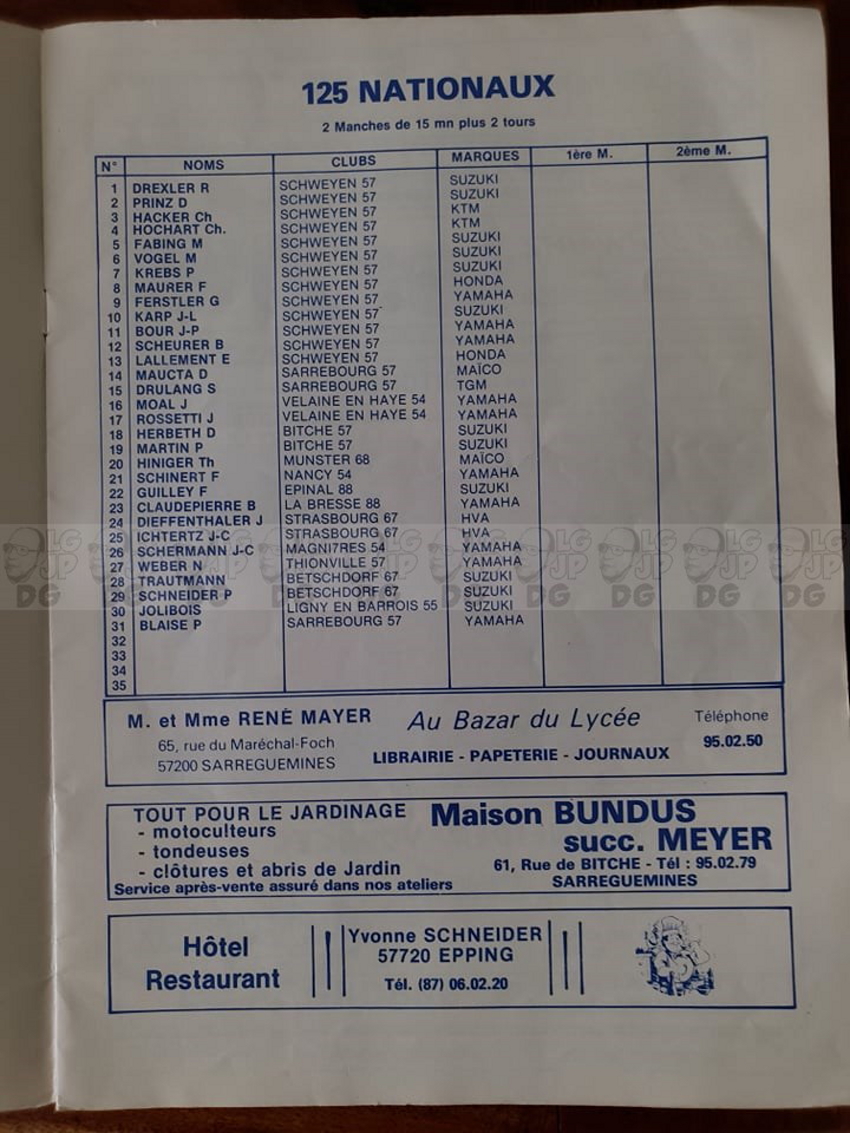 125 NATIONAUX
2 Manches de 15 mn plus 2 tours
N° NOMS CLUBS MARQUES 1ère M. 2ème M.
1 DREXLER R SCHWEYEN 57 SUZUKI
2 PRINZ D SCHWEYEN 57 SUZUKI
3 HACKER Ch SCHWEYEN 57 KTM
4 HOCHART Ch. SCHWEYEN 57 KTM
5 FABING M SCHWEYEN 57 SUZUKI
6 VOGEL M SCHWEYEN 57 SUZUKI
7 KREBS P SCHWEYEN 57 SUZUKI
8 MAURER F SCHWEYEN 57 HONDA
9 FERSTLER G SCHWEYEN 57 YAMAHA
10 KARP J-L SCHWEYEN 57 SUZUKI
11 BOUR J-P SCHWEYEN 57 YAMAHA
12 SCHEURER B SCHWEYEN 57 YAMAHA
13 LALLEMENT E SCHWEYEN 57 HONDA
14 MAUCTA D SARREBOURG 57 MAÏCO
15 DRULANG S SARREBOURG 57 TGM
16 MOAL J VELAINE EN HAYE 54 YAMAHA
17 ROSSETTI J VELAINE EN HAYE 54 YAMAHA
18 HERBETH D BITCHE 57 SUZUKI
19 MARTIN P BITCHE 57 SUZUKI
20 HINIGER Th MUNSTER 68 MAÏCO
21 SCHINERT F NANCY 54 YAMAHA
22 GUILLEY F EPINAL 88 SUZUKI
23 CLAUDEPIERRE B LA BRESSE 88 YAMAHA
24 DIEFFENTHALER J STRASBOURG 67 HVA
25 ICHTERTZ J-C STRASBOURG 67 HVA
26 SCHERMANN J-C MAGNI7RES 54 YAMAHA
27 WEBER N THIONVILLE 57 YAMAHA
28 TRAUTMANN BETSCHDORF 67 SUZUKI
29 SCHNEIDER P BETSCHDORF 67 SUZUKI
30 JOLIBOIS LIGNY EN BARROIS 55 SUZUKI
31 BLAISE P SARREBOURG 57 YAMAHA
32
33
34
35
M. et Mme RENÉ MAYER Au Bazar du Lycée Téléphone
65, rue du Maréchal-Foch 95.02.50
57200 SARREGUEMINES LIBRAIRIE - PAPETERIE - JOURNAUX
TOUT POUR LE JARDINAGE Maison BUNDUS
- motoculteurs succ. MEYER
- tondeuses
- clôtures et abris de Jardin 61, Rue de BITCHE - Tél : 95.02.79
Service après-vente assuré dans nos ateliers SARREGUEMINES
Hôtel Yvonne SCHNEIDER
Restaurant 57720 EPPING
Tél. (87) 06.02.20
LG
JP
DG